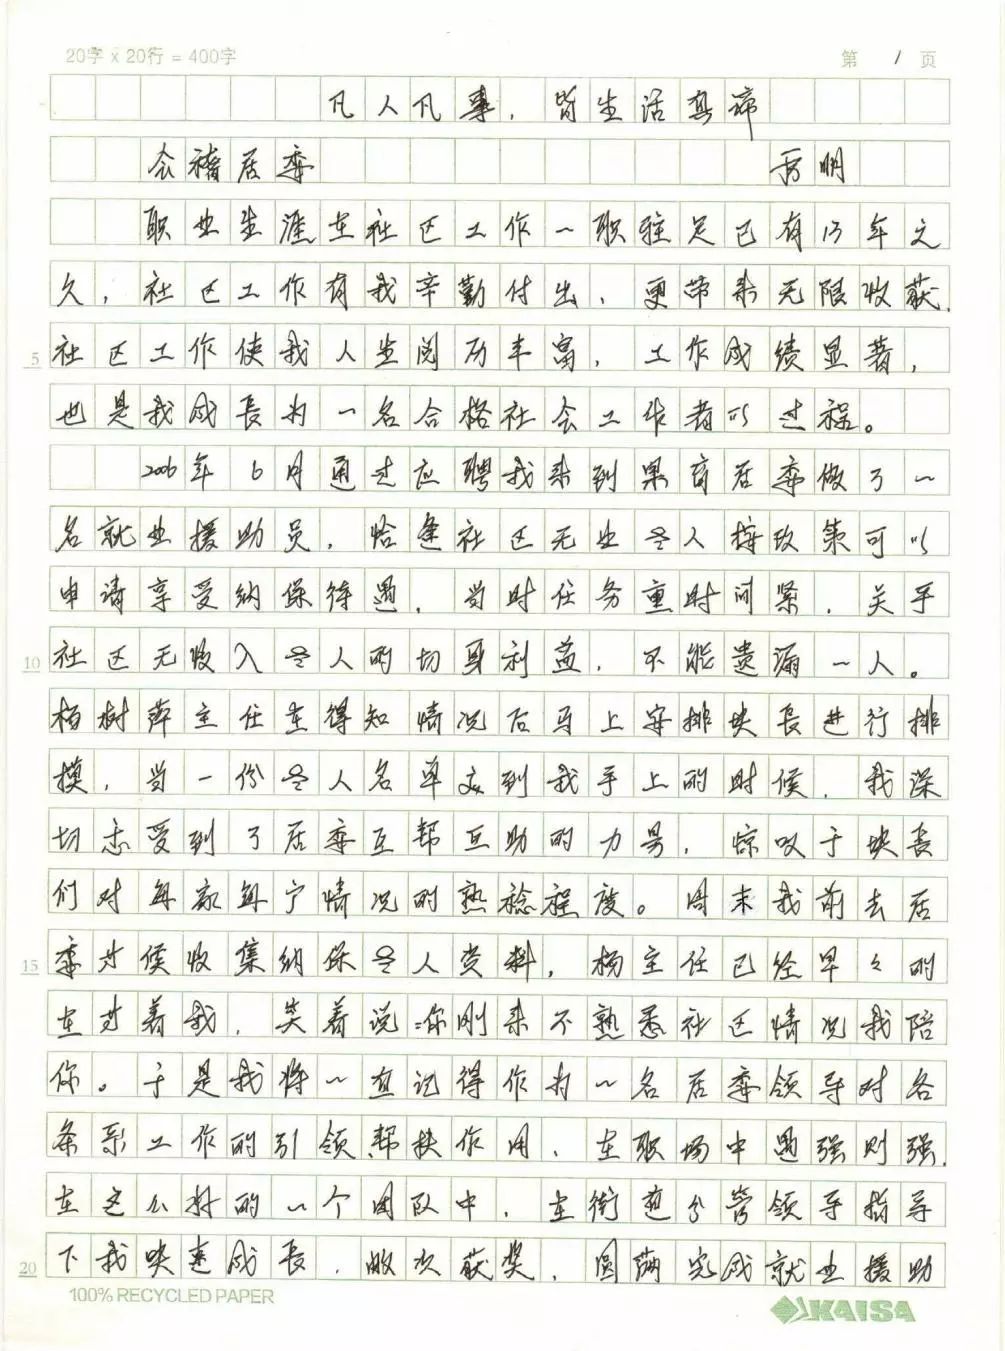 20字 x 20行 = 400字
第 1 页
凡人凡事，皆生活真谛
会稽居委 明
职业生涯在社区工作一职驻足已有13年之
久，社区工作有我辛勤付出，更带来无限收获，
5 社区工作使我人生阅历丰富，工作成绩显著，
也是我成長为一名合格社会工作者的过程。
2006年6月通过应聘我来到果育居委做了一
名就业援助员，恰逢社区无业老人按政策可以
申请享受纳保待遇，当时任务重时间紧，关乎
10 社区无收入老人的切身利益，不能遗漏一人。
杨树萍主任在得知情况后马上安排块長进行排
摸，当一份老人名单交到我手上的时候，我深
切感受到了居委互帮互助的力量，惊叹于块長
们对每家每户情况的熟稔程度。周末我前去居
15 委等候收集纳保老人资料，杨主任已经早々的
在等着我，笑着说：你刚来不熟悉社区情况我陪
你。于是我将一直记得作为一名居委领导对各
条系工作的引领帮扶作用，在职场中遇强则强，
在这么好的一个团队中，在街道分管领导指导
20 下我快速成長，数次获奖，圆满完成就业援助
100% RECYCLED PAPER
KAISA